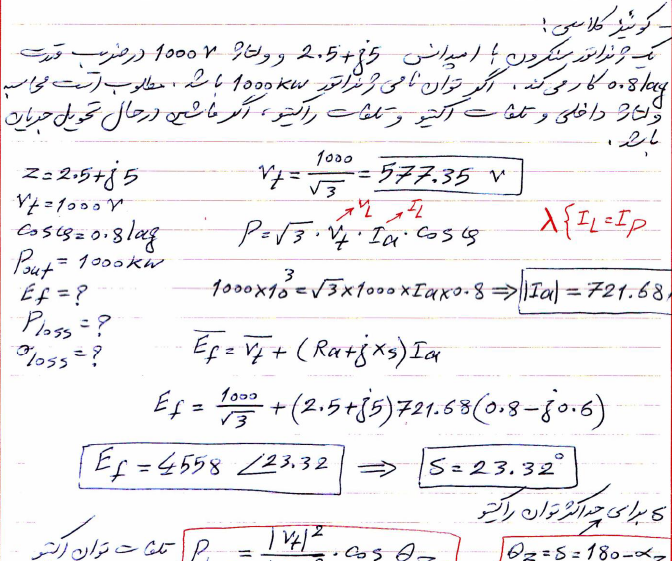 - کوئیز کلاسی:
یک ژنراتور سنکرون با امپدانس 2.5+j5 و ولتاژ 1000 v در ضریب قدرت
0.8 lag کار می‌کند. اگر توان نامی ژنراتور 1000 kw باشد. مطلوب است محاسبه
ولتاژ داخلی و تلفات اکتیو و تلفات راکتیو، اگر ماشین در حال تحویل جریان
باشد.
Z = 2.5+j5
Vt = 1000 v
cosφ = 0.8 lag
Pout = 1000 kw
Ef = ?
Ploss = ?
loss = ?
Vt = 1000/√3 = 577.35 v
VL IL
P = √3 · Vt · Ia · cosφ
λ { IL = IP
1000×10^3 = √3×1000×Ia×0.8 ⇒ |Ia| = 721.68
Ef = Vt + (Ra + jXs) Ia
Ef = 1000/√3 + (2.5+j5) 721.68 (0.8 - j0.6)
Ef = 4558 ∠23.32 ⇒ δ = 23.32°
δ برای حداکثر توان راکتیو
تلفات توان اکتیو
|Vt|^2 · cos θz
θz = δ = 180 - αz